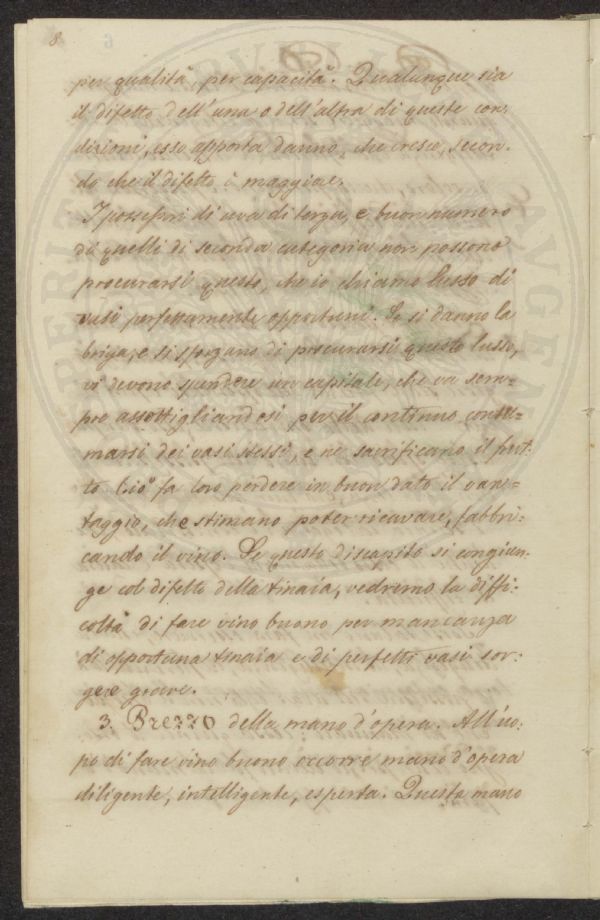 8.
per qualità, per capacità. Qualunque sia
il difetto dell'una o dell'altra di queste con:
dizioni, esso apporta danno, che cresce, secon:
do che il difetto è maggiore.
I possessori di uva di terza, e buon numero
di quelli di seconda categoria non possono
procurarsi questo, che io chiamo lusso di
vasi perfettamente opportuni. Se si danno la
briga, e si sforzano di procurarsi questo lusso,
vi devono spendere un capitale, che va sem=
pre assottigliandosi per il continuo consu=
marsi dei vasi stessi, e ne sacrificano il frut:
to. Ciò fa loro perdere in buon dato il van=
taggio, che stimano poter ricavare, fabbri:
cando il vino. Se questo discapito si congiun:
ge col difetto della tinaia, vedremo la diffi:
coltà di fare vino buono per mancanza
di opportuna tinaia e di perfetti vasi sor:
gere grave.
3. Prezzo della mano d'opera. All'uo:
po di fare vino buono occorre mano d'opera
diligente, intelligente, esperta. Questa mano